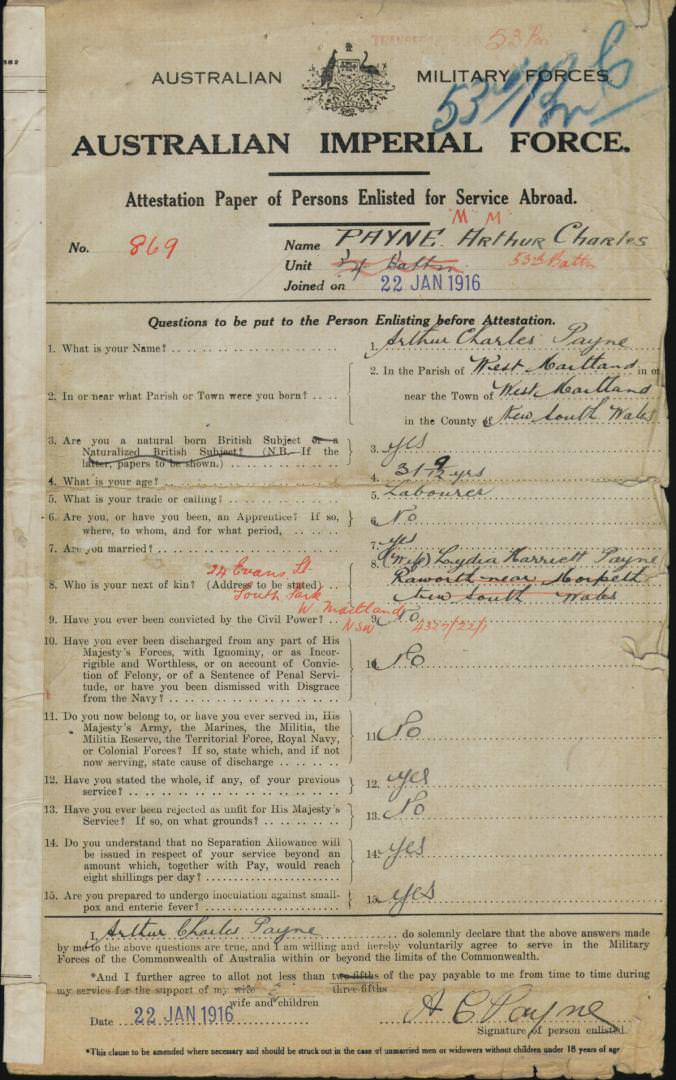 53 Bn
53rd Bn
AUSTRALIAN MILITARY FORCES
AUSTRALIAN IMPERIAL FORCE.
Attestation Paper of Persons Enlisted for Service Abroad.
M M
No. 869 Name PAYNE Arthur Charles
Unit 1/4 Battn 53rd Battn
Joined on 22 JAN 1916
Questions to be put to the Person Enlisting before Attestation.
1. What is your Name? 1. Arthur Charles Payne
2. In or near what Parish or Town were you born? 2. In the Parish of West Maitland in or
near the Town of West Maitland
in the County of New South Wales
3. Are you a natural born British Subject or a
Naturalized British Subject? (N.B. If the
latter, papers to be shown.) 3. yes
4. What is your age? 4. 31 9/12 yrs
5. What is your trade or calling? 5. Labourer
6. Are you, or have you been, an Apprentice? If so,
where, to whom, and for what period, 6. No
7. Are you married? 7. yes
8. Who is your next of kin? (Address to be stated) 8. (Wife) Lydia Harriett Payne
Raworth near Morpeth
New South Wales
24 Evans St
South Park
W Maitland
NSW
9. Have you ever been convicted by the Civil Power? 9. No
10. Have you ever been discharged from any part of His
Majesty's Forces, with Ignominy, or as Incor-
rigible and Worthless, or on account of Convic-
tion of Felony, or of a Sentence of Penal Servi-
tude, or have you been dismissed with Disgrace
from the Navy? 10. No
11. Do you now belong to, or have you ever served in, His
Majesty's Army, the Marines, the Militia, the
Militia Reserve, the Territorial Force, Royal Navy,
or Colonial Forces? If so, state which, and if not
now serving, state cause of discharge 11. No
12. Have you stated the whole, if any, of your previous
service? 12. yes
13. Have you ever been rejected as unfit for His Majesty's
Service? If so, on what grounds? 13. No
14. Do you understand that no Separation Allowance will
be issued in respect of your service beyond an
amount which, together with Pay, would reach
eight shillings per day? 14. yes
15. Are you prepared to undergo inoculation against small-
pox and enteric fever? 15. yes
I, Arthur Charles Payne do solemnly declare that the above answers made
by me to the above questions are true, and I am willing and hereby voluntarily agree to serve in the Military
Forces of the Commonwealth of Australia within or beyond the limits of the Commonwealth.
*And I further agree to allot not less than two-fifths of the pay payable to me from time to time during
three-fifths
my service for the support of my wife
wife and children
Date 22 JAN 1916 A C Payne
Signature of person enlisted.
*This clause to be amended where necessary and should be struck out in the case of unmarried men or widowers without children under 18 years of age